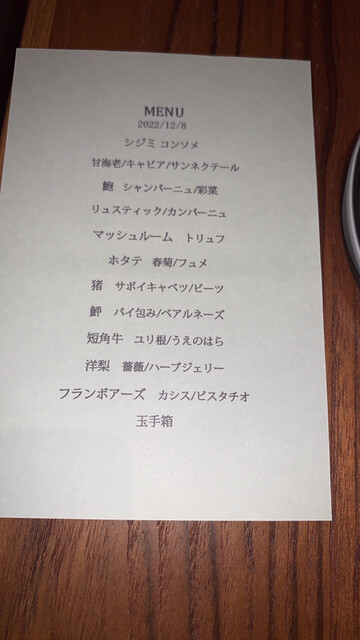 MENU
2022/12/8
シジミ コンソメ
甘海老/キャビア/サンネクテール
鮑 シャンパーニュ/彩菜
リュスティック/カンパーニュ
マッシュルーム トリュフ
ホタテ 春菊/フュメ
猪 サボイキャベツ/ビーツ
鮃 パイ包み/ベアルネーズ
短角牛 ユリ根/うえのはら
洋梨 薔薇/ハーブジェリー
フランボアーズ カシス/ピスタチオ
玉手箱